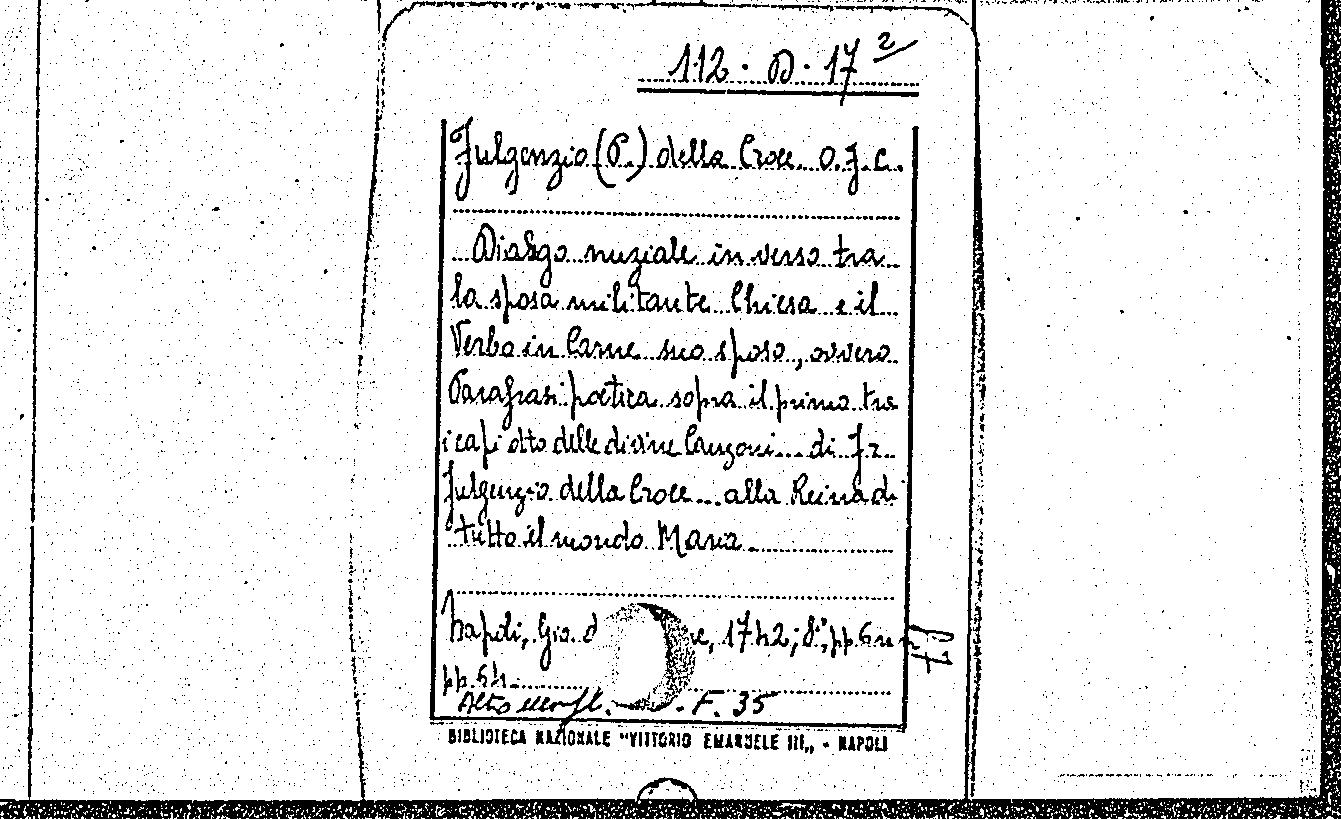 112 · D · 17²
Fulgenzio (P.) della Croce O.F.C.
Dialogo nuziale in verso tra
la sposa militante Chiesa e il
Verbo in Carne suo sposo, ovvero
Parafrasi poetica sopra il primo tre
i capi otto delle divine Canzoni ... di Fr.
Fulgenzio della Croce ... alla Reina di
tutto il mondo Maria
Napoli, Gio. d , 1742; 8°, pp. 6 n
pp. 64.
F. 35
BIBLIOTECA NAZIONALE "VITTORIO EMANUELE III„ - NAPOLI